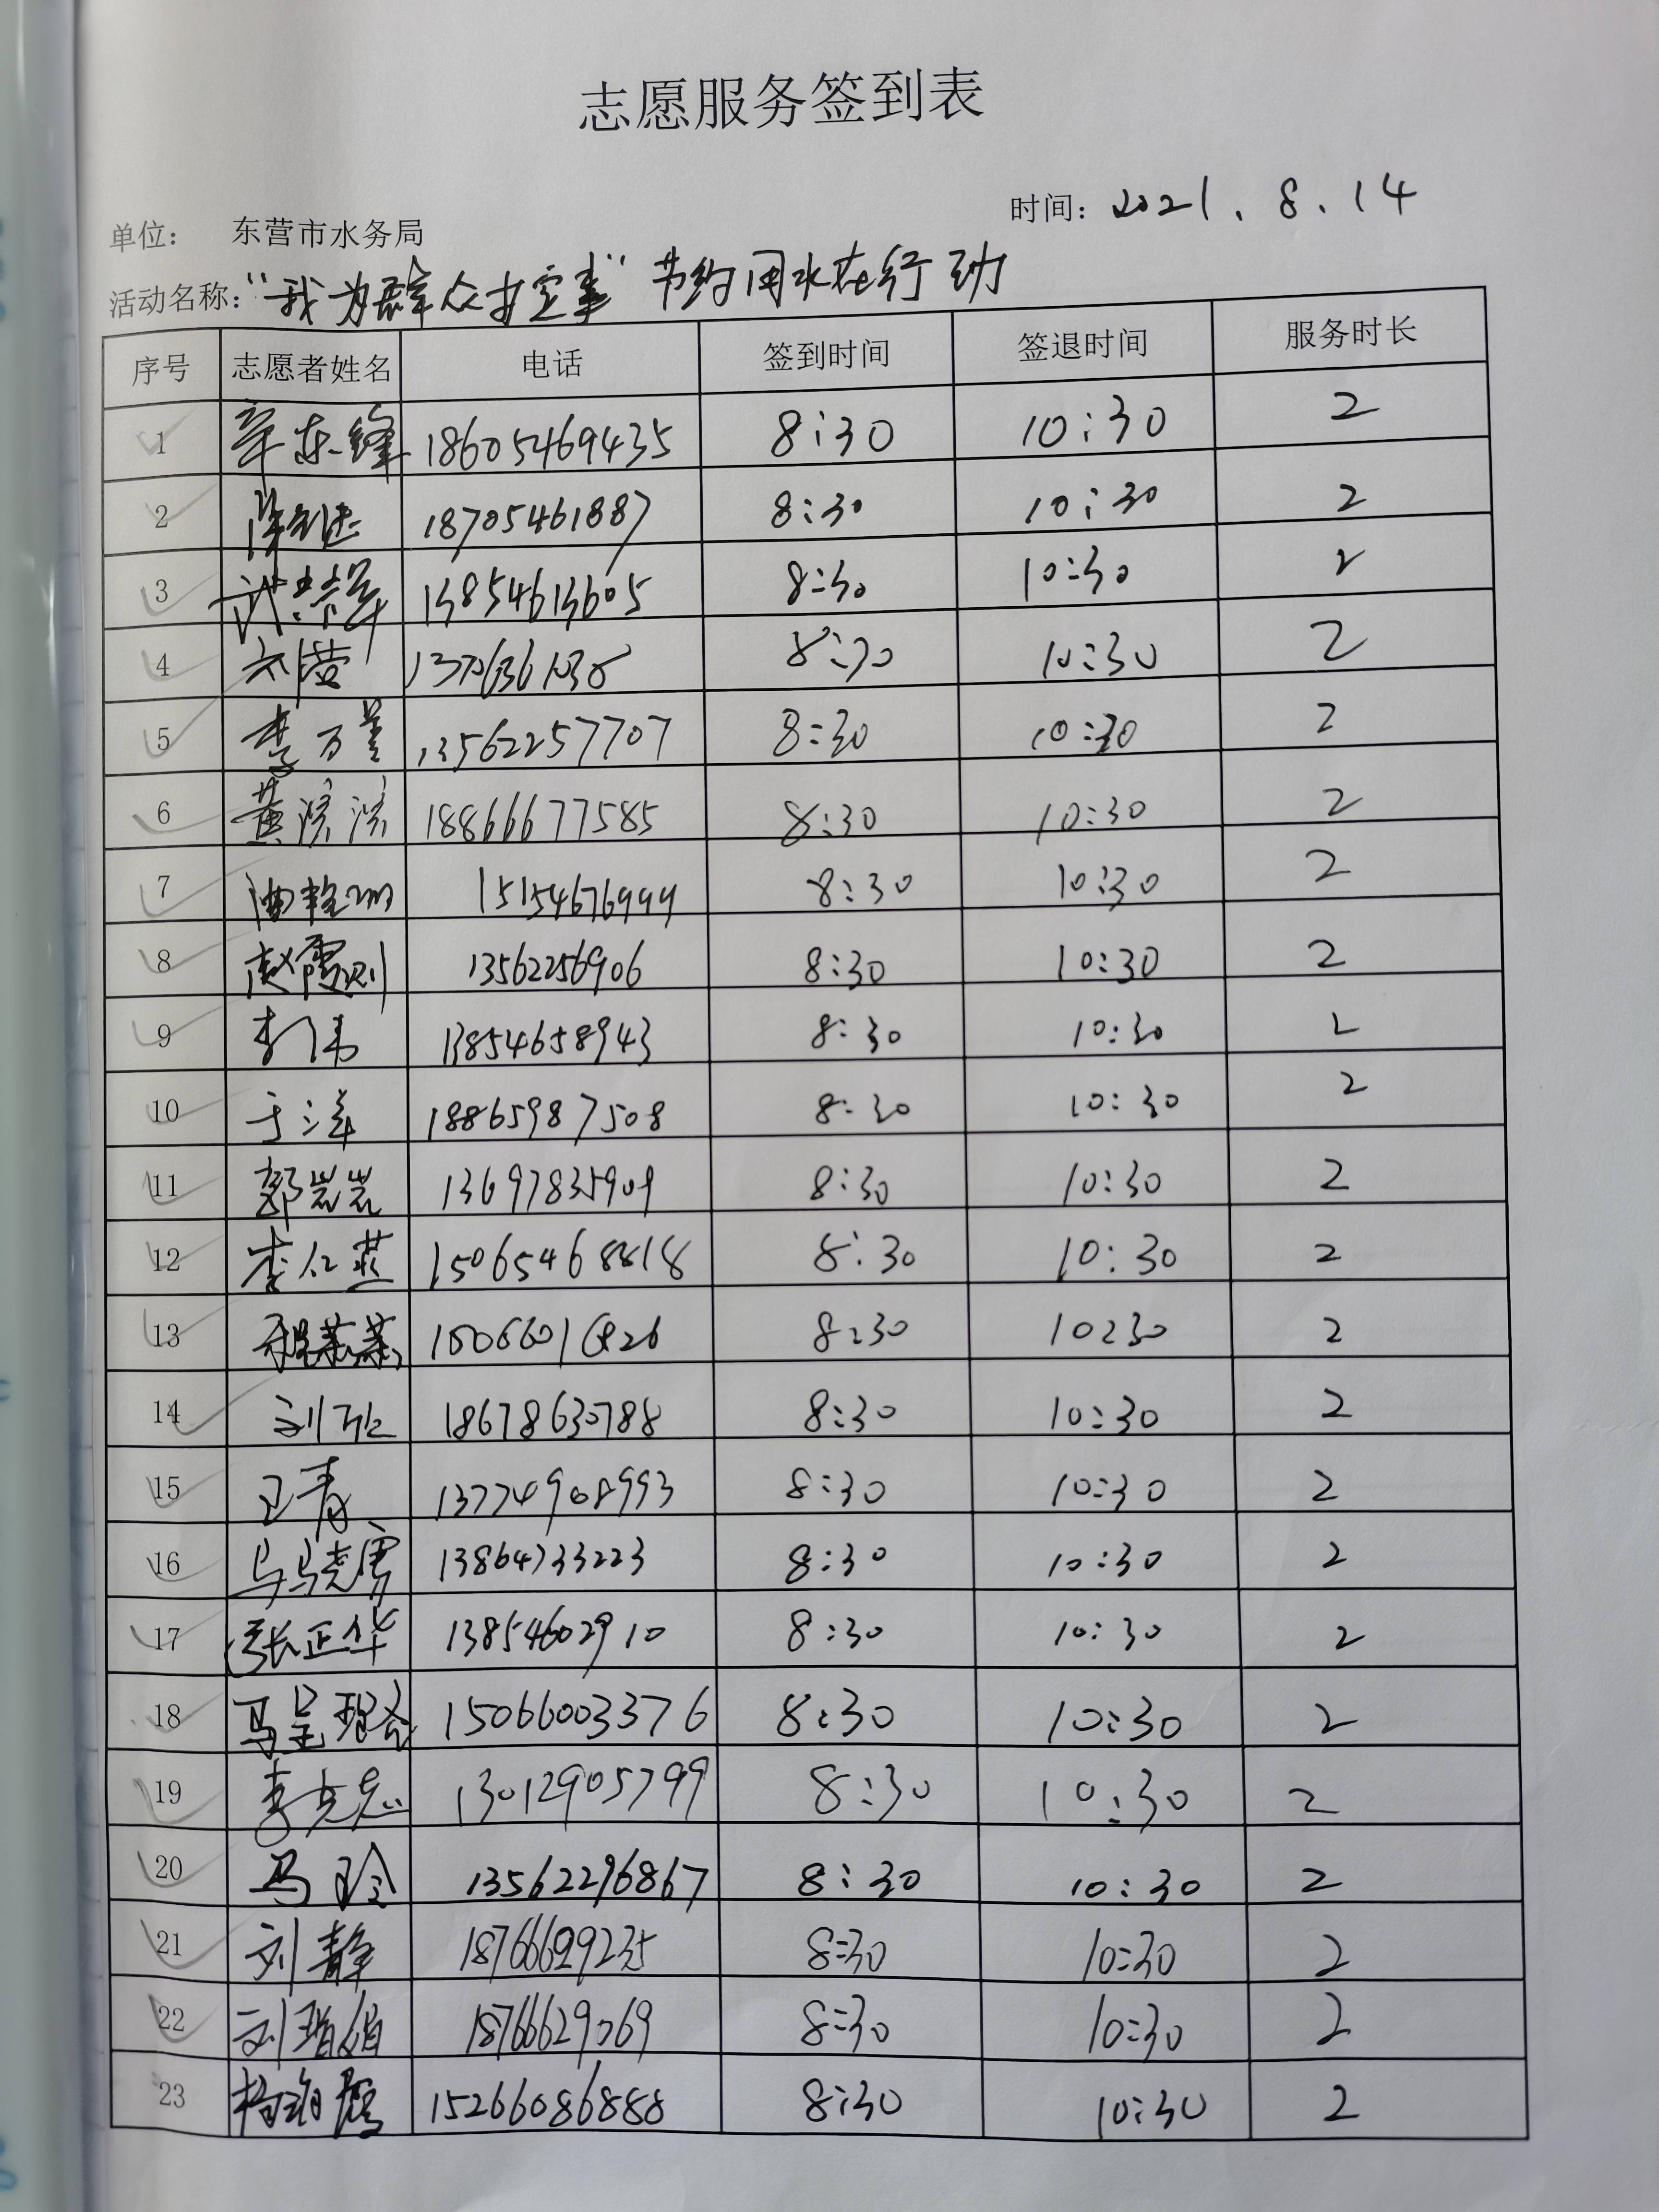 志愿服务签到表
时间: 2021.8.14
单位: 东营市水务局
活动名称:"我为群众办实事"节约用水在行动
序号 志愿者姓名 电话 签到时间 签退时间 服务时长
1 辛东锋 18605469435 8:30 10:30 2
2 18705461887 8:30 10:30 2
3 13854613605 8:30 10:30 2
4 刘营 8:30 10:30 2
5 李万 13562257707 8:30 10:30 2
6 黄滨滨 18866677585 8:30 10:30 2
7 15154676999 8:30 10:30 2
8 赵霞 13562256906 8:30 10:30 2
9 李伟 13854658943 8:30 10:30 2
10 于洋 18865987508 8:30 10:30 2
11 郭岩岩 13697835909 8:30 10:30 2
12 李仁燕 15065468818 8:30 10:30 2
13 8:30 10:30 2
14 刘 18678630788 8:30 10:30 2
15 卫青 13774908993 8:30 10:30 2
16 13864733223 8:30 10:30 2
17 张正华 13854602910 8:30 10:30 2
18 马呈 15066003376 8:30 10:30 2
19 李克忠 13012905799 8:30 10:30 2
20 马玲 13562296867 8:30 10:30 2
21 刘静 18766699235 8:30 10:30 2
22 刘 18766629069 8:30 10:30 2
23 15266086888 8:30 10:30 2